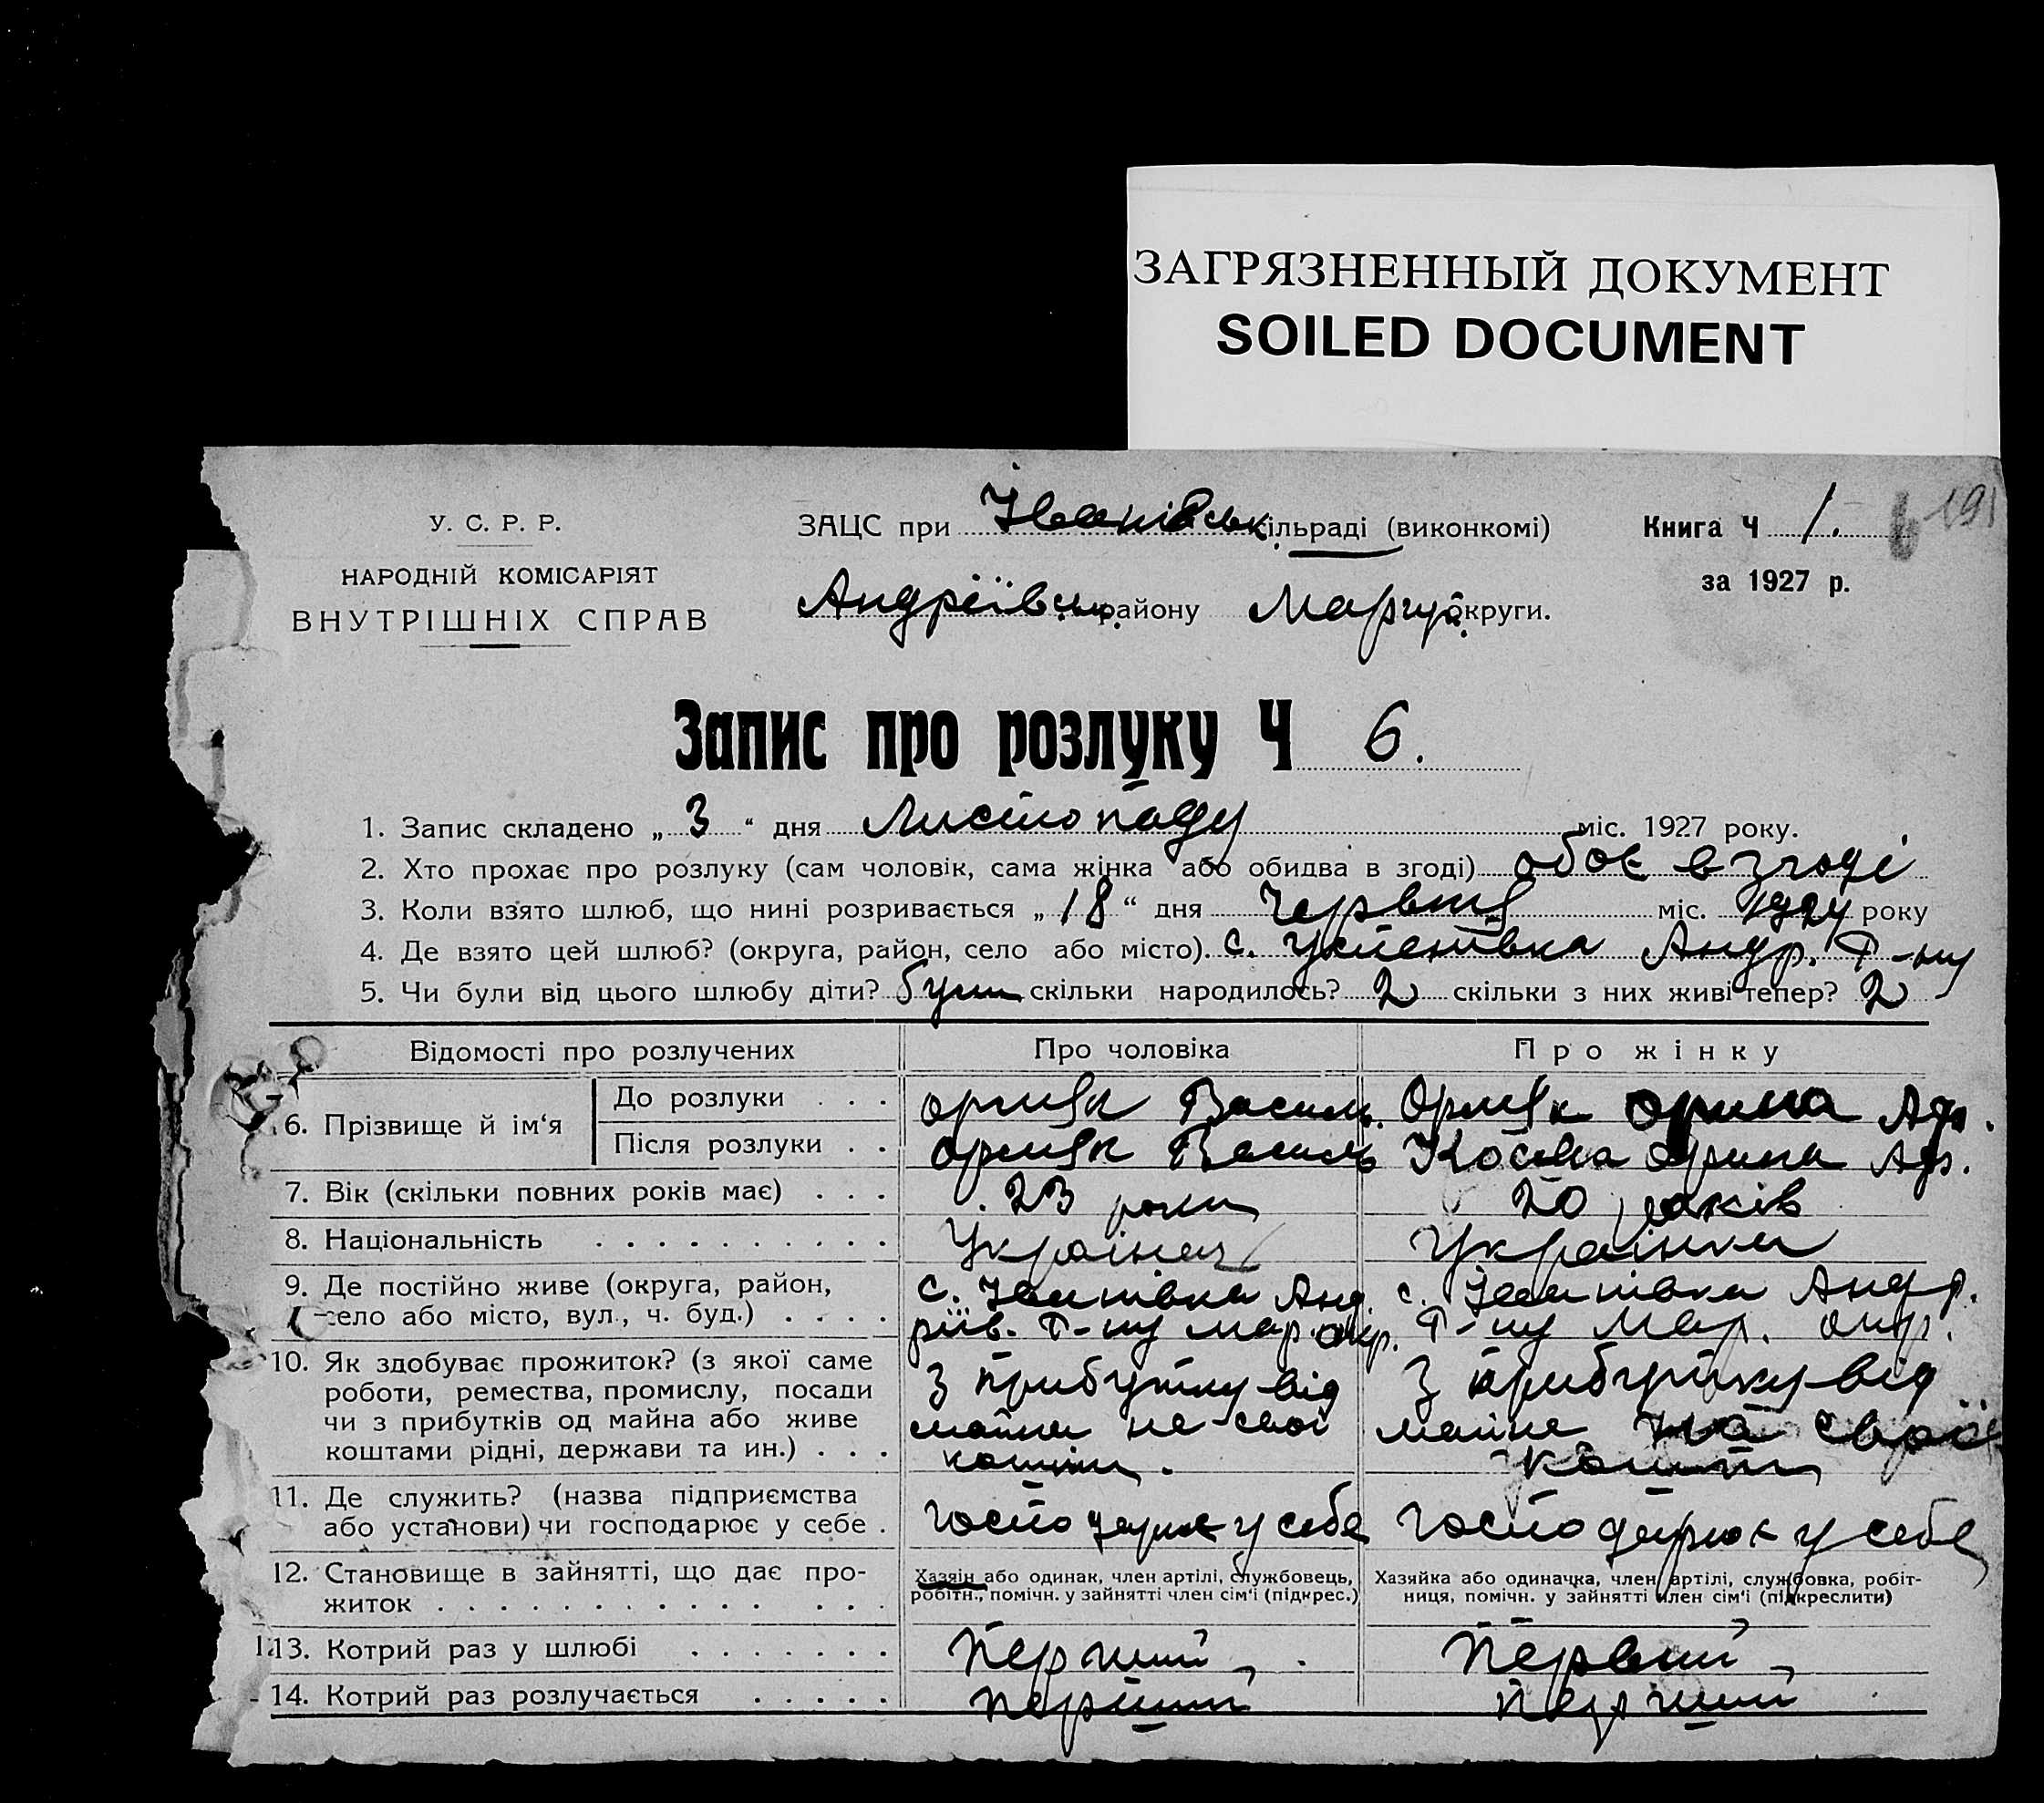 ЗАГРЯЗНЕННЫЙ ДОКУМЕНТ
SOILED DOCUMENT
У. С. Р. Р.
НАРОДНІЙ КОМІСАРІЯТ
ВНУТРІШНІХ СПРАВ
ЗАЦС при Іванівськ. сільраді (виконкомі)
Андріївськ. району Маріуп. округи.
Книга Ч 1.
191
за 1927 р.
Запис про розлуку Ч 6.
1. Запис складено „ 3 “ дня Листопаду міс. 1927 року.
2. Хто прохає про розлуку (сам чоловік, сама жінка або обидва в згоді) обоє в згоді
3. Коли взято шлюб, що нині розривається „ 18 “ дня Червня міс. 1924 року
4. Де взято цей шлюб? (округа, район, село або місто). с. Успенівка Андр. Р-ну
5. Чи були від цього шлюбу діти? були скільки народилось? 2 скільки з них живі тепер? 2
Відомості про розлучених Про чоловіка Про жінку
6. Прізвище й ім‘я
До розлуки . . . Василь Орина
Після розлуки . . Василь Орина
7. Вік (скільки повних років має) . . . 23 роки 20 років
8. Національність . . . . . . . . . . Українец Українка
9. Де постійно живе (округа, район, с. Іванівка Анд. с. Іванівка Андр.
село або місто, вул., ч. буд.) . . . . ріїв. Р-ну Мар. окр. Р-ну Мар. окр.
10. Як здобуває прожиток? (з якої саме
роботи, ремества, промислу, посади З прибутку від З прибутку від
чи з прибутків од майна або живе майна на свої майна на свої
коштами рідні, держави та ин.) . . . кошти. кошти
11. Де служить? (назва підприємства
або установи) чи господарює у себе . господарює у себе господарює у себе
12. Становище в зайнятті, що дає про- Хазяін або одинак, член артілі, службовець, Хазяйка або одиначка, член артілі, службовка, робіт-
житок . . . . . . . . . . . . . . робітн., помічн. у зайнятті член сім‘ї (підкрес.) ниця, помічн. у зайнятті член сім‘ї (підкреслити)
13. Котрий раз у шлюбі . . . . . . . Перший Первий
14. Котрий раз розлучається . . . . . Перший Перший